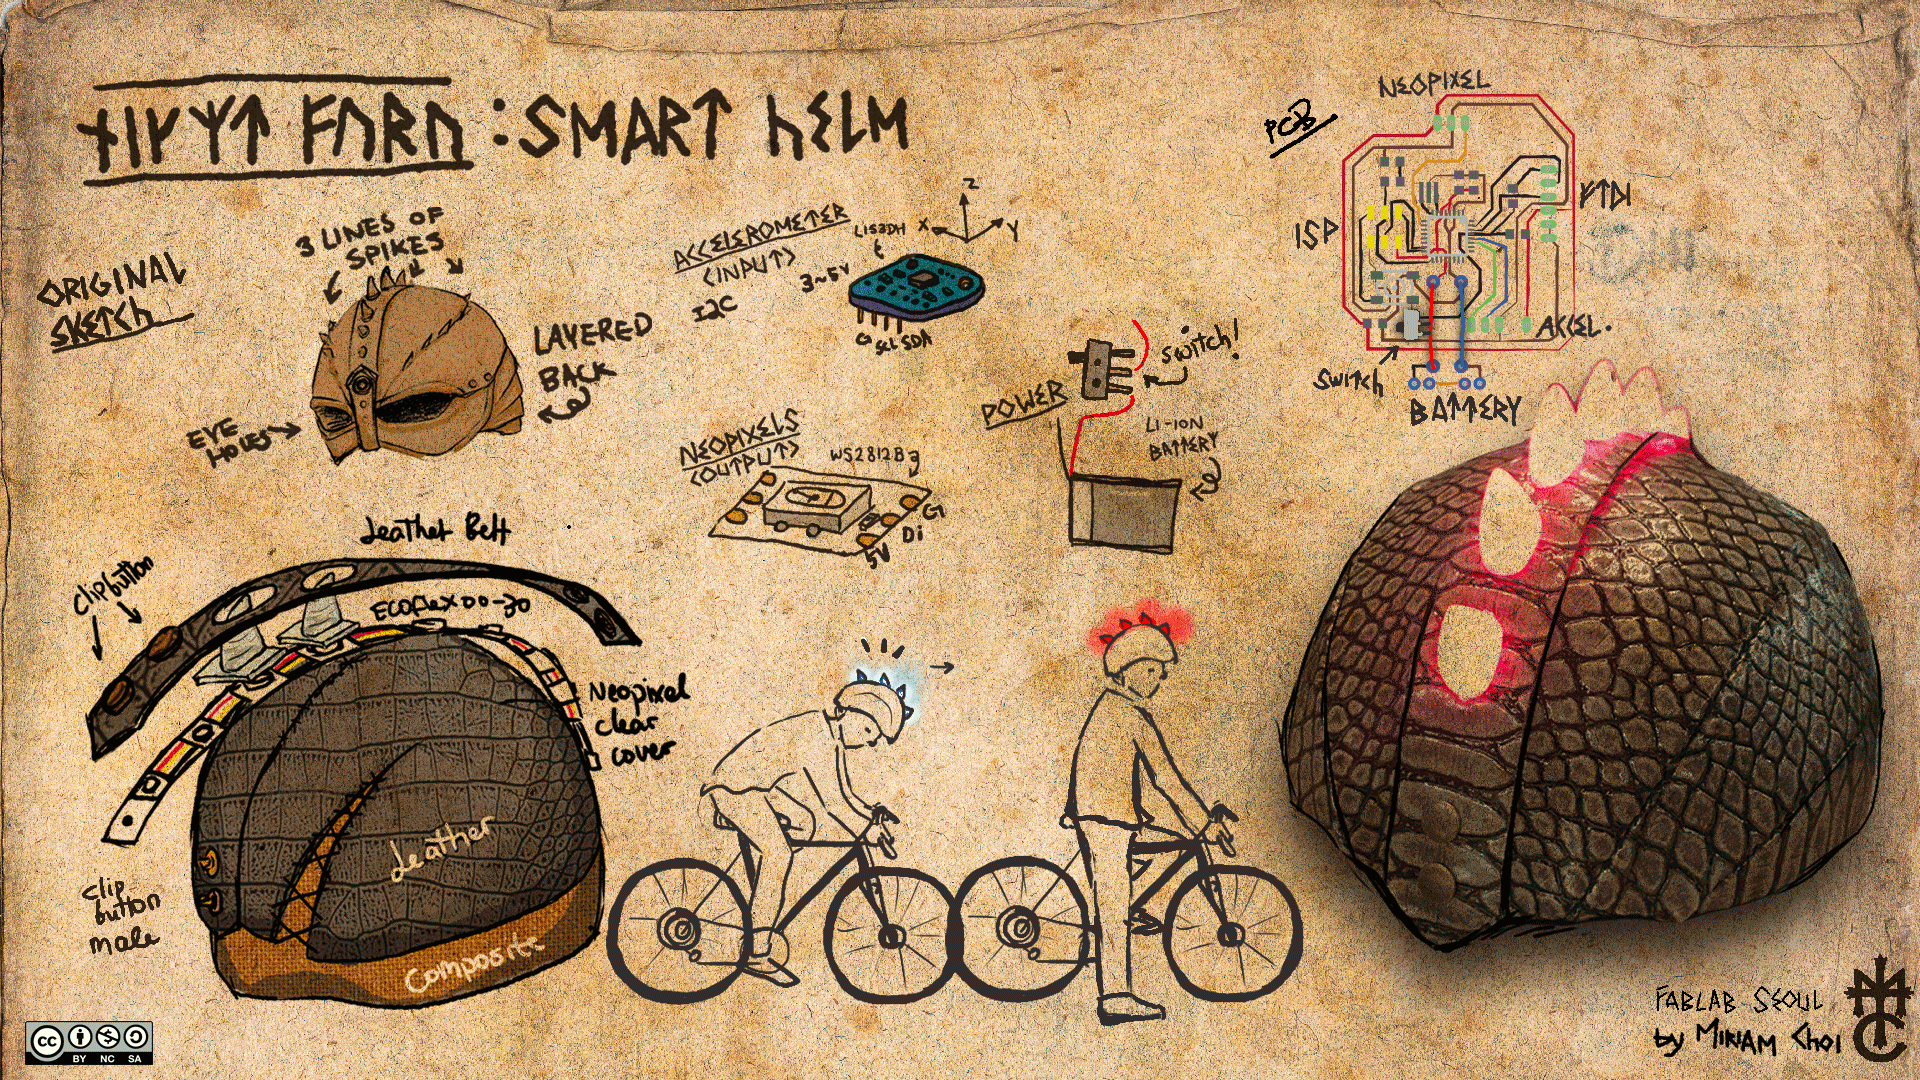 : SMART HELM
ORIGINAL
SKETCH
3 LINES OF
SPIKES
LAYERED
BACK
EYE
HOLES
ACCELEROMETER
(INPUT)
I2C
LIS3DH
3~5V
SCL SDA
X
Z
Y
NEOPIXELS
(OUTPUT)
WS2812B
G
Di
5V
POWER
Switch!
LI-ION
BATTERY
PCB
NEOPIXEL
ISP
FTDI
ACCEL.
Switch
BATTERY
Leather Belt
Clip button
ECOFLEX 00-30
Neopixel
clear
cover
Leather
Composite
clip
button
male
FABLAB SEOUL
by MIRIAM CHOI
MC
cc
BY NC SA